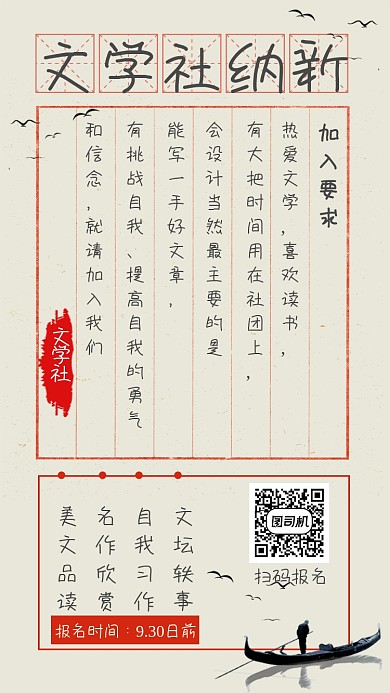 文学社纳新
加入要求
热爱文学，喜欢读书，
有大把时间用在社团上，
会设计当然最主要的是
能写一手好文章，
有挑战自我、提高自我的勇气
和信念，就请加入我们
文学社
文坛轶事
自我习作
名作欣赏
美文品读
图司机
扫码报名
报名时间：9.30日前